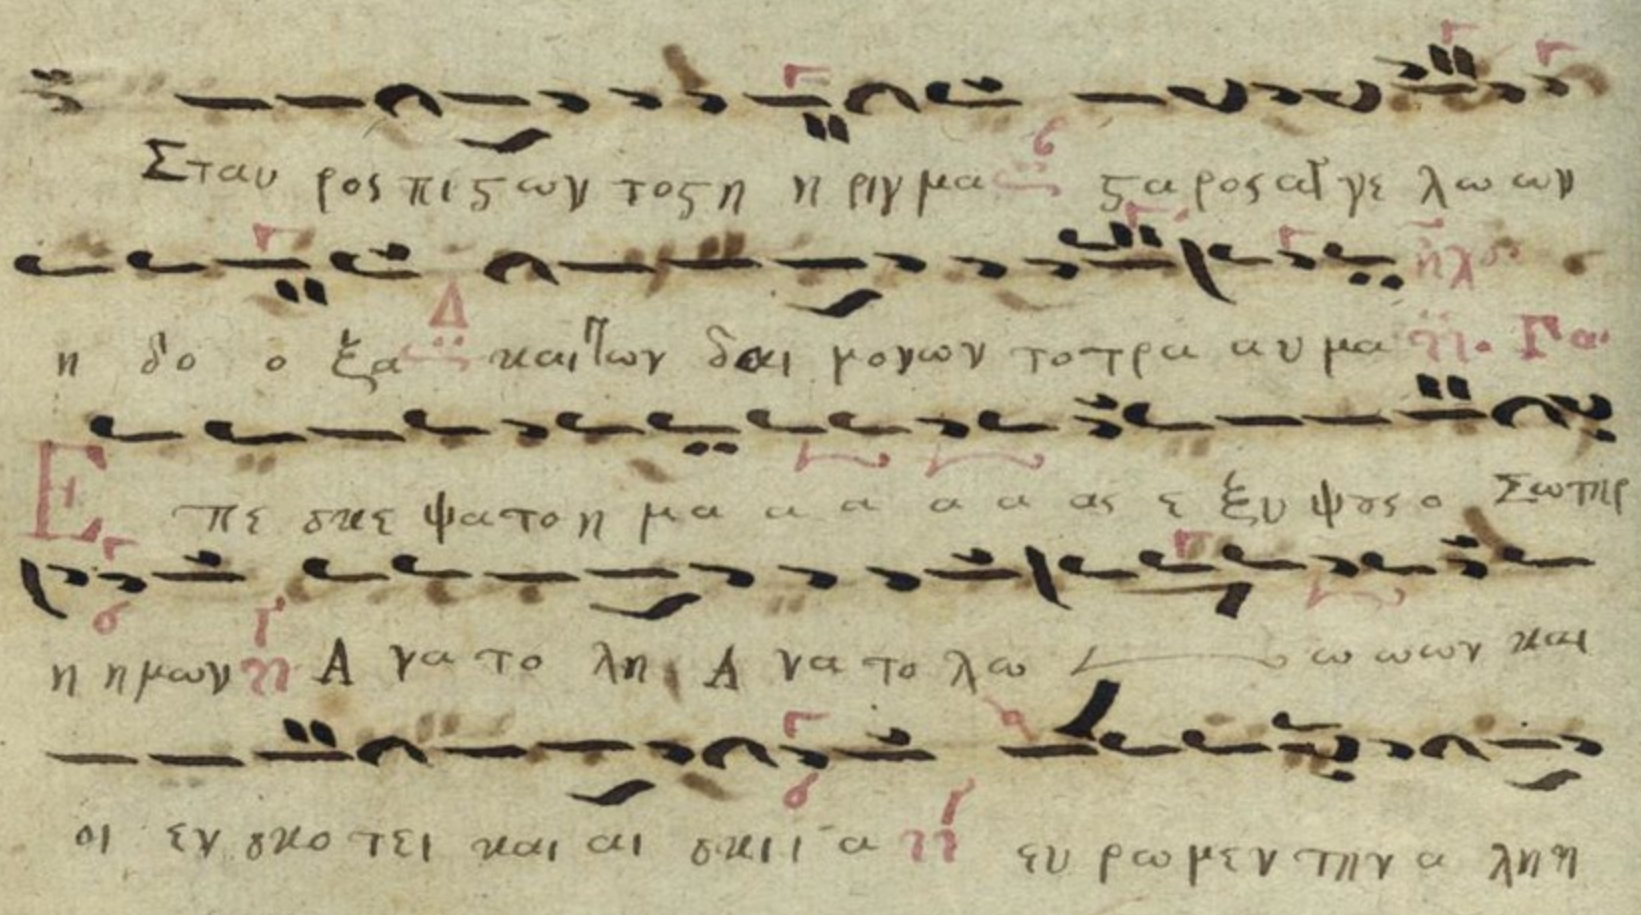 Σταυ ρος πι ϛων το ϛη η ριγ μα ϛα ρος αγ γε λω ων
η δο ο ξα Δ και των δαι μο νων το τρα αυ μα ηχος Γα
Ε πε σκε ψα το η μα α α α α ας ε ξυ ψους ο Σωτηρ
η η μων Α να το λη Α να το λω ω ω ων και
οι εν σκο τει και αι σκι ι α ευ ρω μεν την α λη η